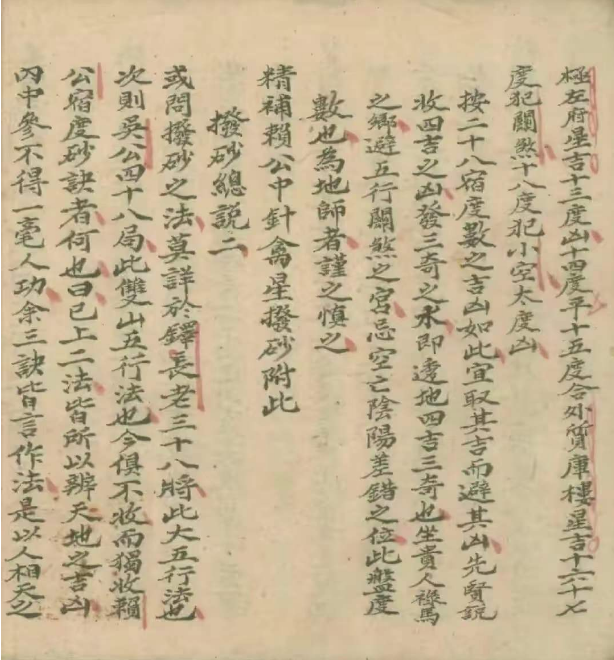 極左府星吉十三度凶十四度平十五度合外質庫樓星吉十六十七
度犯關煞十八度犯小空太度凶
按二十八宿度數之吉凶如此宜取其吉而避其凶先賢説
收四吉之凶發三奇之水即透地四吉三奇也坐貴人祿馬
之鄉避五行關煞之宮忌空亡陰陽差錯之位此盤度
數也為地師者謹之慎之
精補賴公中針禽星撥砂附此
撥砂總説二
或問撥砂之法莫詳於鐸長老三十八將此大五行法也
次則吳公四十八局此雙山五行法也今俱不收而獨收賴
公宿度砂訣者何也曰已上二法皆所以辨天地之吉凶
内中參不得一毫人功余三訣皆言作法是以人相天之